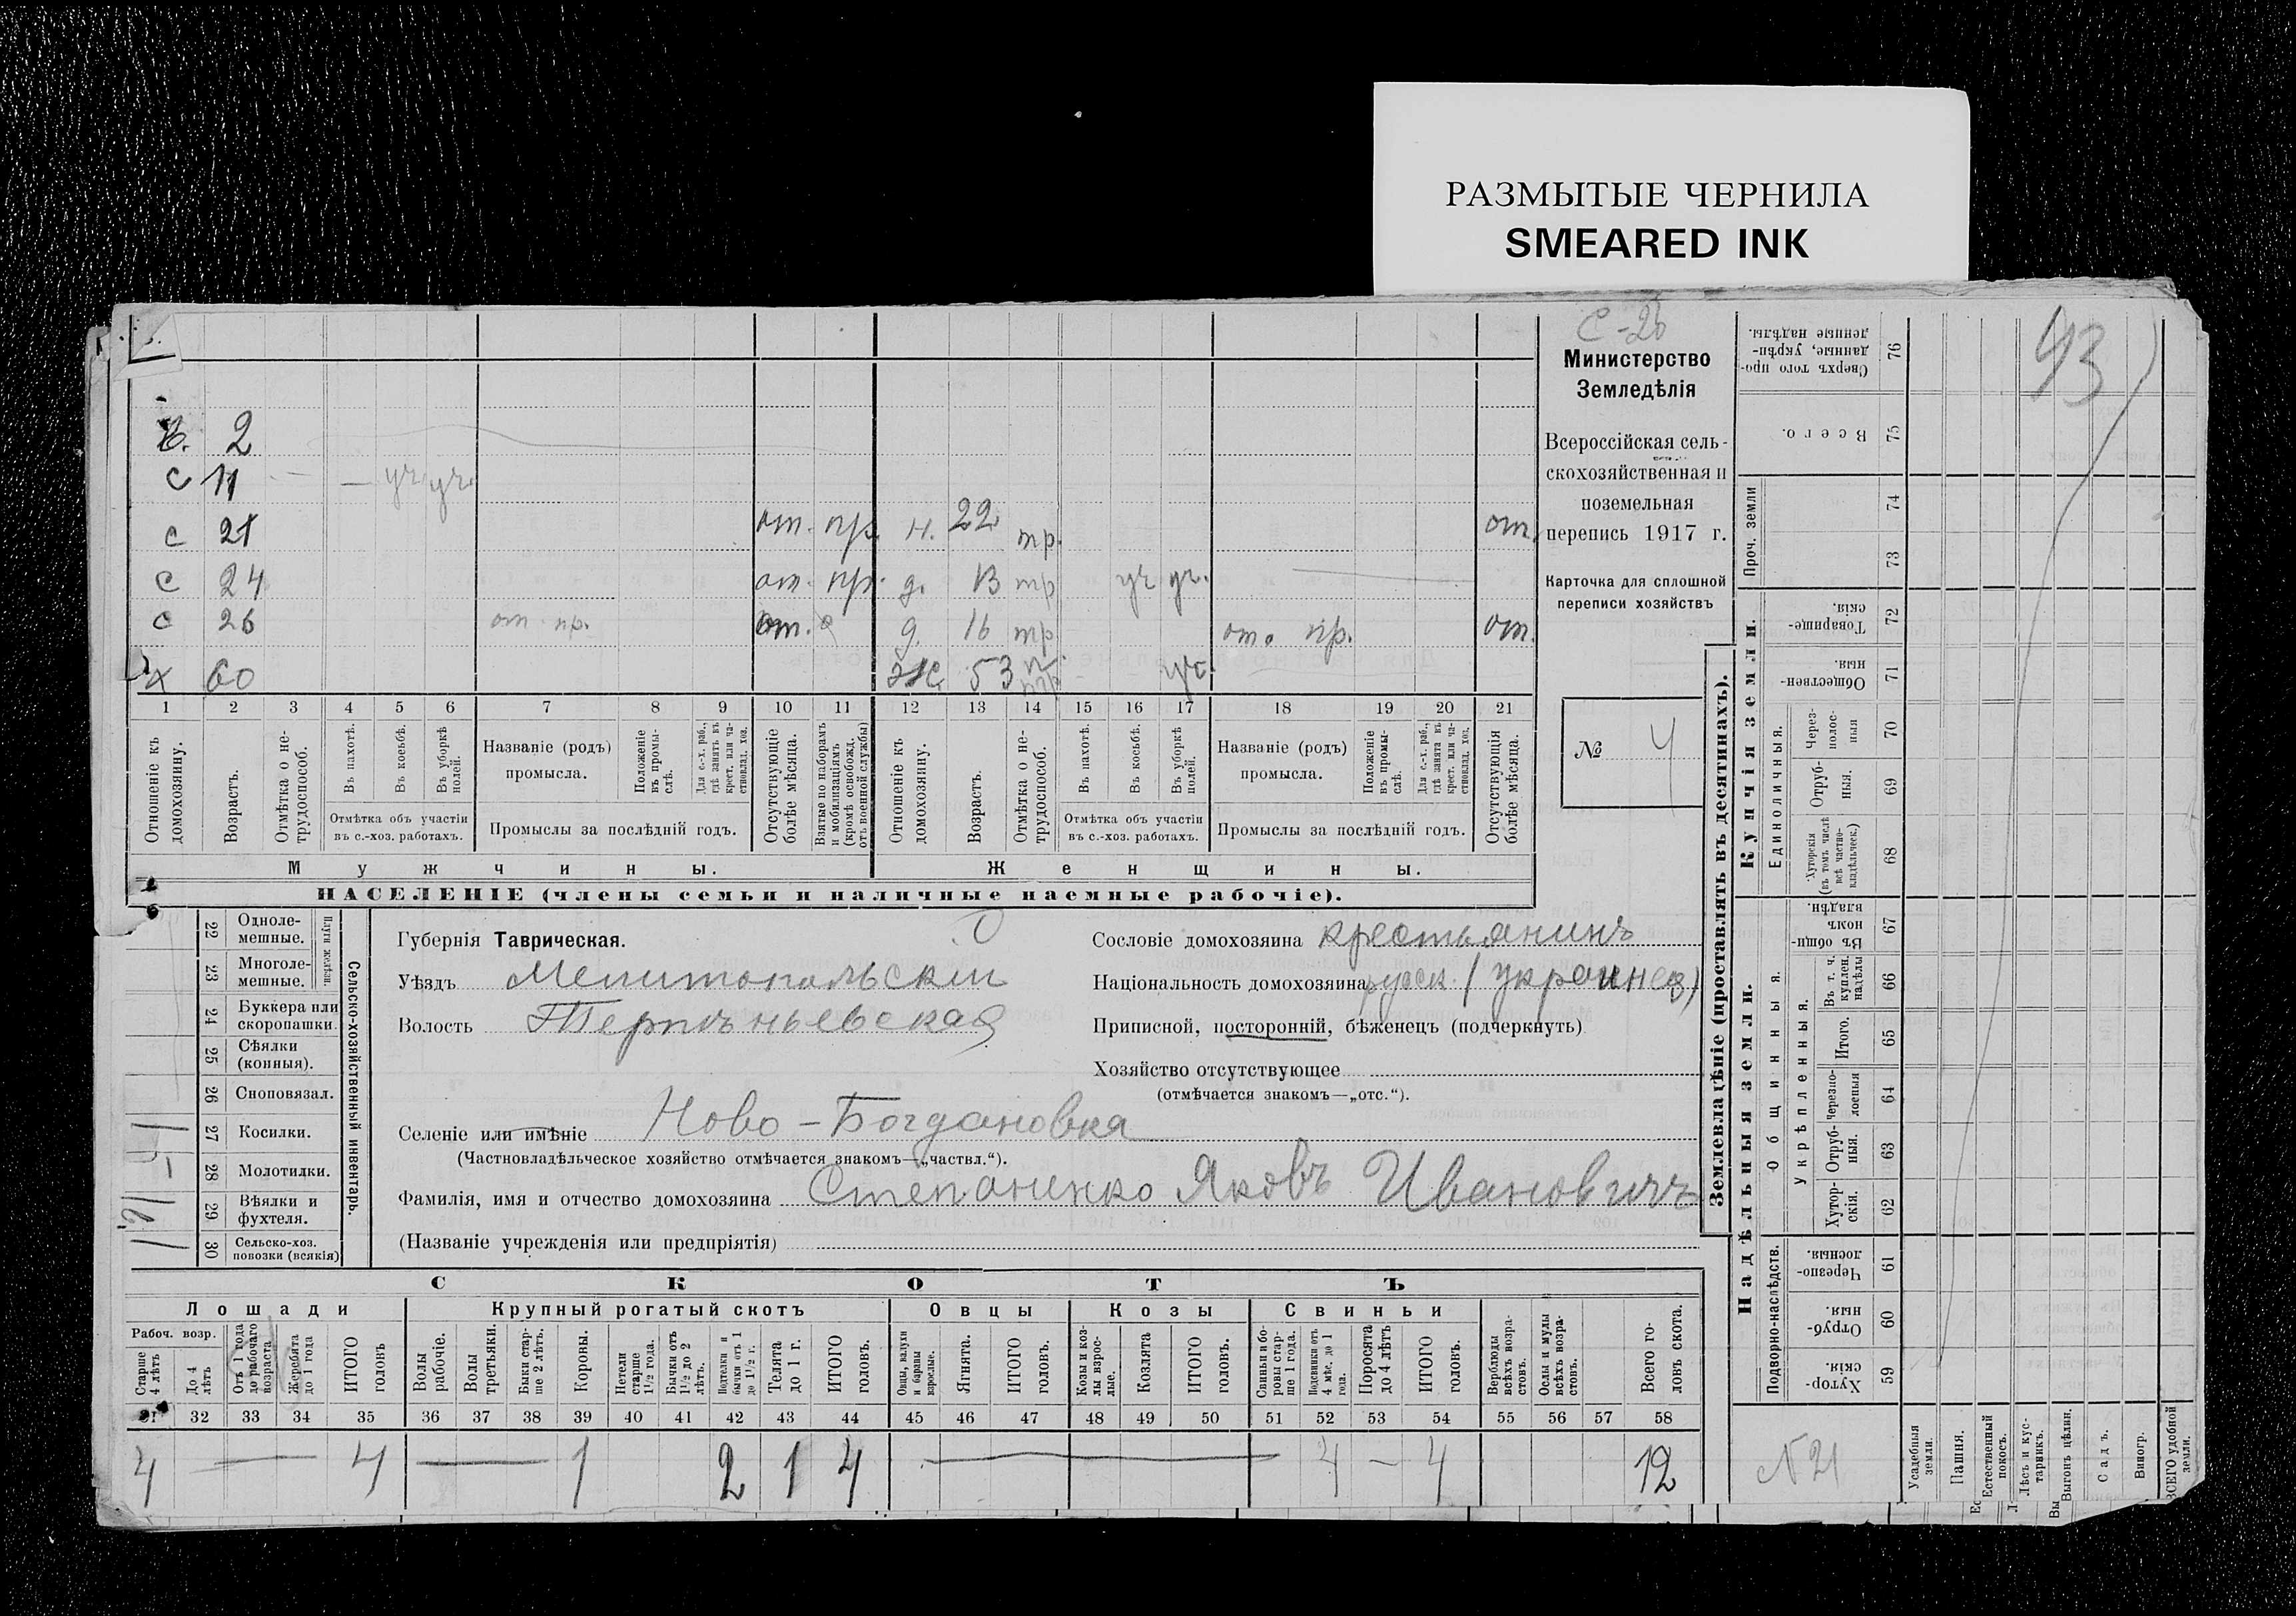 РАЗМЫТЫЕ ЧЕРНИЛА
SMEARED INK
С-26
Министерство
Земледѣлія
Всероссійская сель-
скохозяйственная и
поземельная
перепись 1917 г.
Карточка для сплошной
переписи хозяйствъ
№ 4
43
2
с 11 — — уч уч.
с 21 от. пр. н. 22 тр. от.
с 24 от. пр. д. 13 тр уч уч.
с 26 от пр. от. д. 16 тр от. пр. от.
х 60 ж 53 уч.
1 2 3 4 5 6 7 8 9 10 11 12 13 14 15 16 17 18 19 20 21
Отношеніе къ домохозяину.
Возрастъ.
Отмѣтка о не-трудоспособ.
Въ пахотѣ.
Въ косьбѣ.
Въ уборкѣ полей.
Отмѣтка объ участіи въ с.-хоз. работахъ.
Названіе (родъ) промысла.
Положеніе въ промы-слѣ.
Для с.-х. раб., гдѣ занятъ въ крест. или ча-стновлад. хоз.
Промыслы за послѣдній годъ.
Отсутствующіе болѣе мѣсяца.
Взятые по наборамъ и мобилизаціямъ (кромѣ освобожд. отъ военной службы)
Отношеніе къ домохозяину.
Возрастъ.
Отмѣтка о не-трудоспособ.
Въ пахотѣ.
Въ косьбѣ.
Въ уборкѣ полей.
Отмѣтка объ участіи въ с.-хоз. работахъ.
Названіе (родъ) промысла.
Положеніе въ промы-слѣ.
Для с.-х. раб., гдѣ занята въ крест. или ча-стновлад. хоз.
Промыслы за послѣдній годъ.
Отсутствующія болѣе мѣсяца.
Мужчины.
Женщины.
НАСЕЛЕНІЕ (члены семьи и наличные наемные рабочіе).
Сельско-хозяйственный инвентарь.
22 Одноле-мешные.
23 Многоле-мешные.
24 Буккера или скоропашки.
25 Сѣялки (конныя).
26 Сноповязал.
27 Косилки. 1
28 Молотилки.
29 Вѣялки и фухтеля.
30 Сельско-хоз. повозки (всякія)
Губернія Таврическая.
Уѣздъ Мелитопольскій
Волость Терпѣньевская
Сословіе домохозяина крестьянинъ
Національность домохозяина русск. (украинец)
Приписной, посторонній, бѣженецъ (подчеркнуть)
Хозяйство отсутствующее
(отмѣчается знакомъ—„отс.“).
Селеніе или имѣніе Ново-Богдановка
(Частновладѣльческое хозяйство отмѣчается знакомъ—„частвл.“).
Фамилія, имя и отчество домохозяина Степаненко Яковъ Ивановичъ
(Названіе учрежденія или предпріятія)
СКОТЪ
Лошади
Крупный рогатый скотъ
Овцы
Козы
Свиньи
Рабоч. возр.
Старше 4 лѣтъ
До 4 лѣтъ
Отъ 1 года до рабочаго возраста
Жеребята до 1 года
ИТОГО головъ
Волы рабочіе.
Волы третьяки.
Быки стар-ше 2 лѣтъ.
Коровы.
Нетели старше 1 1/2 года.
Бычки отъ 1 1/2 до 2 лѣтъ.
Подтелки и бычки отъ 1 до 1 1/2 г.
Телята до 1 г.
ИТОГО головъ.
Овцы, валухи и бараны взрослые.
Ягнята.
ИТОГО головъ.
Козы и коз-лы взрос-лые.
Козлята
ИТОГО головъ.
Свиньи и бо-ровы стар-ше 1 года.
Подсвинки отъ 4 мѣс. до 1 года.
Поросята до 4 лѣтъ
ИТОГО головъ.
Верблюды всѣхъ возра-стовъ.
Ослы и мулы всѣхъ возра-стовъ.
Всего го-ловъ скота.
31 32 33 34 35 36 37 38 39 40 41 42 43 44 45 46 47 48 49 50 51 52 53 54 55 56 57 58
4 — 4 — 1 2 1 4 — 4 — 4 12
Землевладѣніе (проставлять въ десятинахъ).
Купчія земли.
Надѣльныя земли.
Сверхъ того про-данные, укрѣп-денные надѣлы. 76
Всего. 75
Проч. земли 74 73
Товарище-скія. 72
Обществен-ныя. 71
Единоличныя.
Через-полос-ныя 70
Отруб-ныя. 69
Хуторскія (въ томъ числѣ всѣ частно-владѣльческ.) 68
Общинныя.
Въ общи-номъ владѣн. 67
Укрѣпленныя.
Въ т. ч. куплен. надѣлы 66
Итого. 65
Черезпо-лосныя 64
Отруб-ныя. 63
Хутор-скія. 62
Подворно-наслѣдств.
Черезпо-лосныя. 61
Отруб-ныя. 60
Хутор-скія. 59
N 21
Усадебныя земли.
Пашня.
Естественный покосъ.
Лѣсъ и кус-тарникъ.
Выгонъ цѣлин.
Садъ.
Виногр.
ВСЕГО удобной земли.